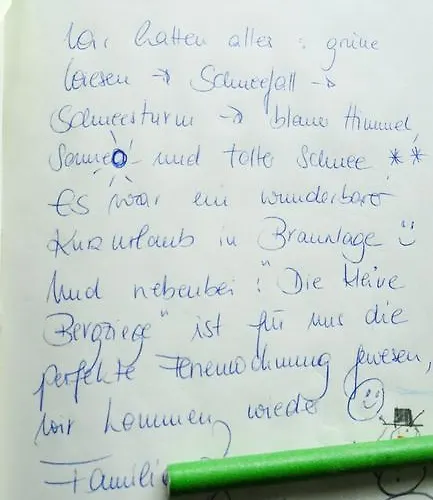 Wir hatten alles: grüne
Wiesen → Schneefall →
Schneesturm → blauer Himmel,
Sonne und toller Schnee **
Es war ein wunderbarer
Kurzurlaub in Braunlage ☺
Und nebenbei: "Die kleine
Bergziege" ist für uns die
perfekte Ferienwohnung gewesen,
wir kommen wieder
Familie